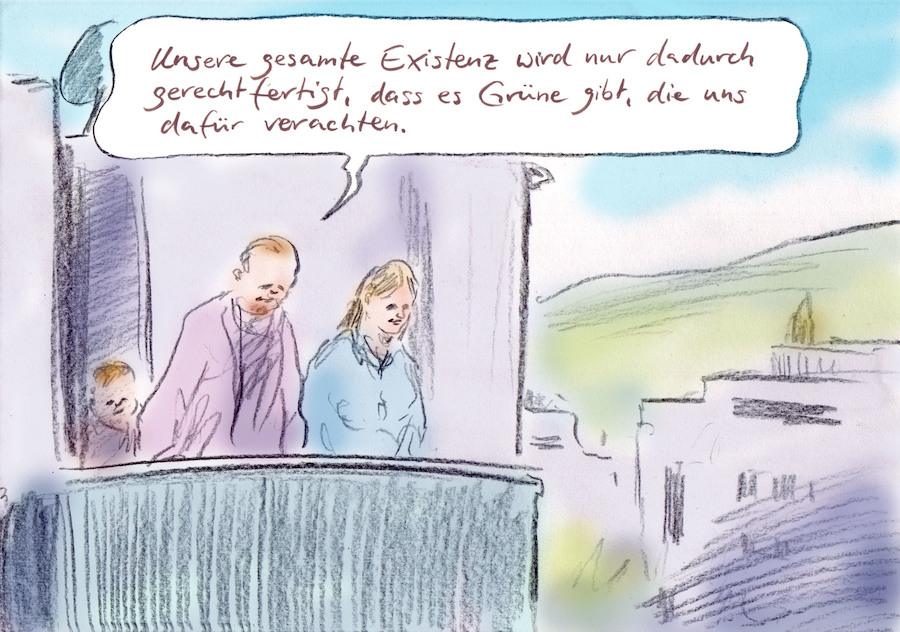 Unsere gesamte Existenz wird nur dadurch
gerechtfertigt, dass es Grüne gibt, die uns
dafür verachten.